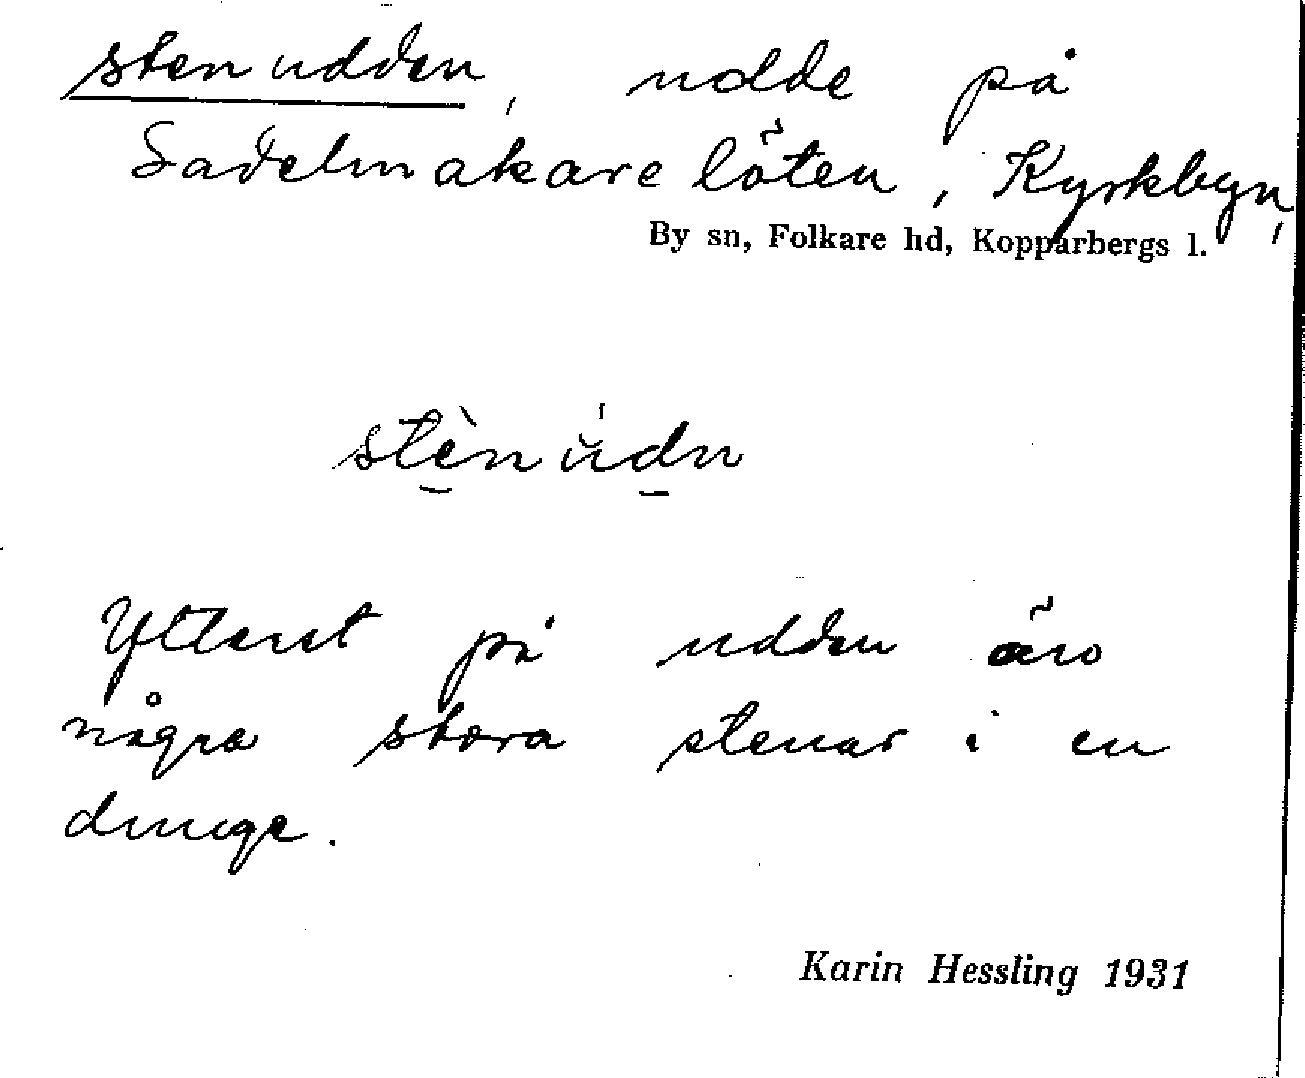 stenudden, udde på
Sadelmakarelöten, Kyrkbyn,
By sn, Folkare hd, Kopparbergs l.
stèn ŭ́dn
Ytterst på udden äro
några stora stenar i en
drunge.
Karin Hessling 1931